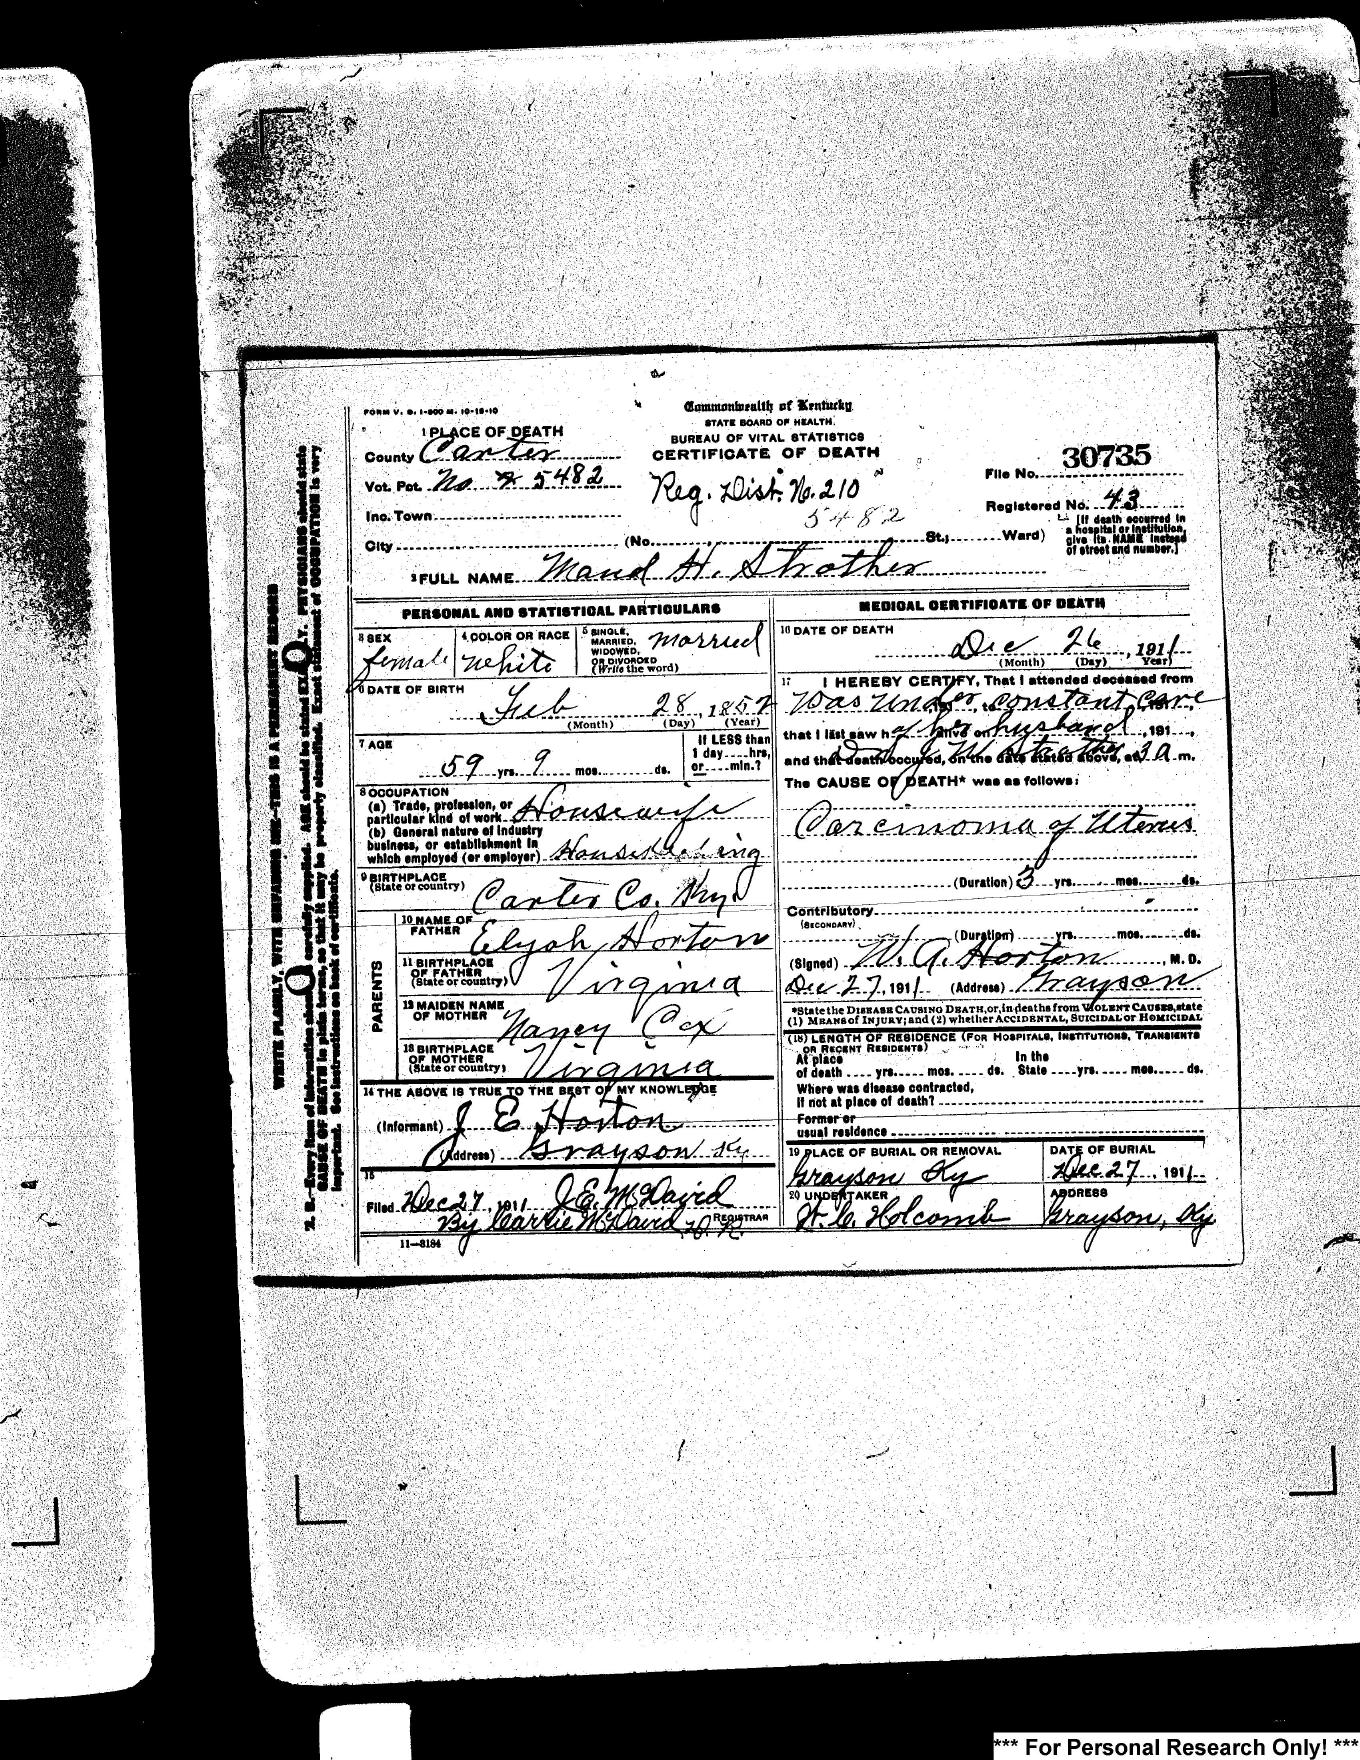 FORM V. S. 1-500 M. 10-18-10
Commonwealth of Kentucky
STATE BOARD OF HEALTH.
BUREAU OF VITAL STATISTICS
CERTIFICATE OF DEATH
1 PLACE OF DEATH
County Carter
Vot. Pct. No 5482
Inc. Town
City (No. St.; Ward)
Reg. Dist. No. 210
5482
File No. 30735
Registered No. 43
[If death occurred in
a hospital or institution,
give its NAME instead
of street and number.]
2 FULL NAME Maud H. Strother
PERSONAL AND STATISTICAL PARTICULARS
3 SEX
female
4 COLOR OR RACE
White
5 SINGLE,
MARRIED,
WIDOWED,
OR DIVORCED
(Write the word)
married
6 DATE OF BIRTH
Feb 28, 1852
(Month) (Day) (Year)
7 AGE
59 yrs. 9 mos. ds.
If LESS than
1 day hrs,
or min.?
8 OCCUPATION
(a) Trade, profession, or
particular kind of work Housewife
(b) General nature of industry
business, or establishment in
which employed (or employer) Housekeeping
9 BIRTHPLACE
(State or country) Carter Co. Ky
PARENTS
10 NAME OF
FATHER Elijah Horton
11 BIRTHPLACE
OF FATHER
(State or country) Virginia
12 MAIDEN NAME
OF MOTHER Nancy Cox
13 BIRTHPLACE
OF MOTHER
(State or country) Virginia
14 THE ABOVE IS TRUE TO THE BEST OF MY KNOWLEDGE
(Informant) J E Horton
(Address) Grayson Ky
15
Filed Dec 27, 1911 J.E. McDavid
By Carrie McDavid, D.R. REGISTRAR
11-3184
MEDICAL CERTIFICATE OF DEATH
16 DATE OF DEATH
Dec 26, 1911
(Month) (Day) Year)
17 I HEREBY CERTIFY, That I attended deceased from
Was under constant care
that I last saw h alive on , 191 ,
of her husband
and that death occured, on the date stated above, at 3 a m.
Dr J W Strother
The CAUSE OF DEATH* was as follows:
Carcinoma of Uterus
(Duration) 3 yrs. mos. ds.
Contributory
(SECONDARY)
(Duration) yrs. mos. ds.
(Signed) W. A. Horton, M. D.
Dec 27, 1911 (Address) Grayson
*State the DISEASE CAUSING DEATH, or, in deaths from VIOLENT CAUSES, state
(1) MEANS of INJURY; and (2) whether ACCIDENTAL, SUICIDAL or HOMICIDAL
(18) LENGTH OF RESIDENCE (FOR HOSPITALS, INSTITUTIONS, TRANSIENTS
OR RECENT RESIDENTS)
At place In the
of death yrs. mos. ds. State yrs. mos. ds.
Where was disease contracted,
If not at place of death?
Former or
usual residence
19 PLACE OF BURIAL OR REMOVAL
Grayson Ky
DATE OF BURIAL
Dec 27, 1911
20 UNDERTAKER
H. C. Holcomb
ADDRESS
Grayson, Ky
WRITE PLAINLY, WITH UNFADING INK—THIS IS A PERMANENT RECORD
N. B.—Every item of information should be carefully supplied. AGE should be stated EXACTLY. PHYSICIANS should state
CAUSE OF DEATH in plain terms, so that it may be properly classified. Exact statement of OCCUPATION is very
important. See instructions on back of certificate.
*** For Personal Research Only! ***